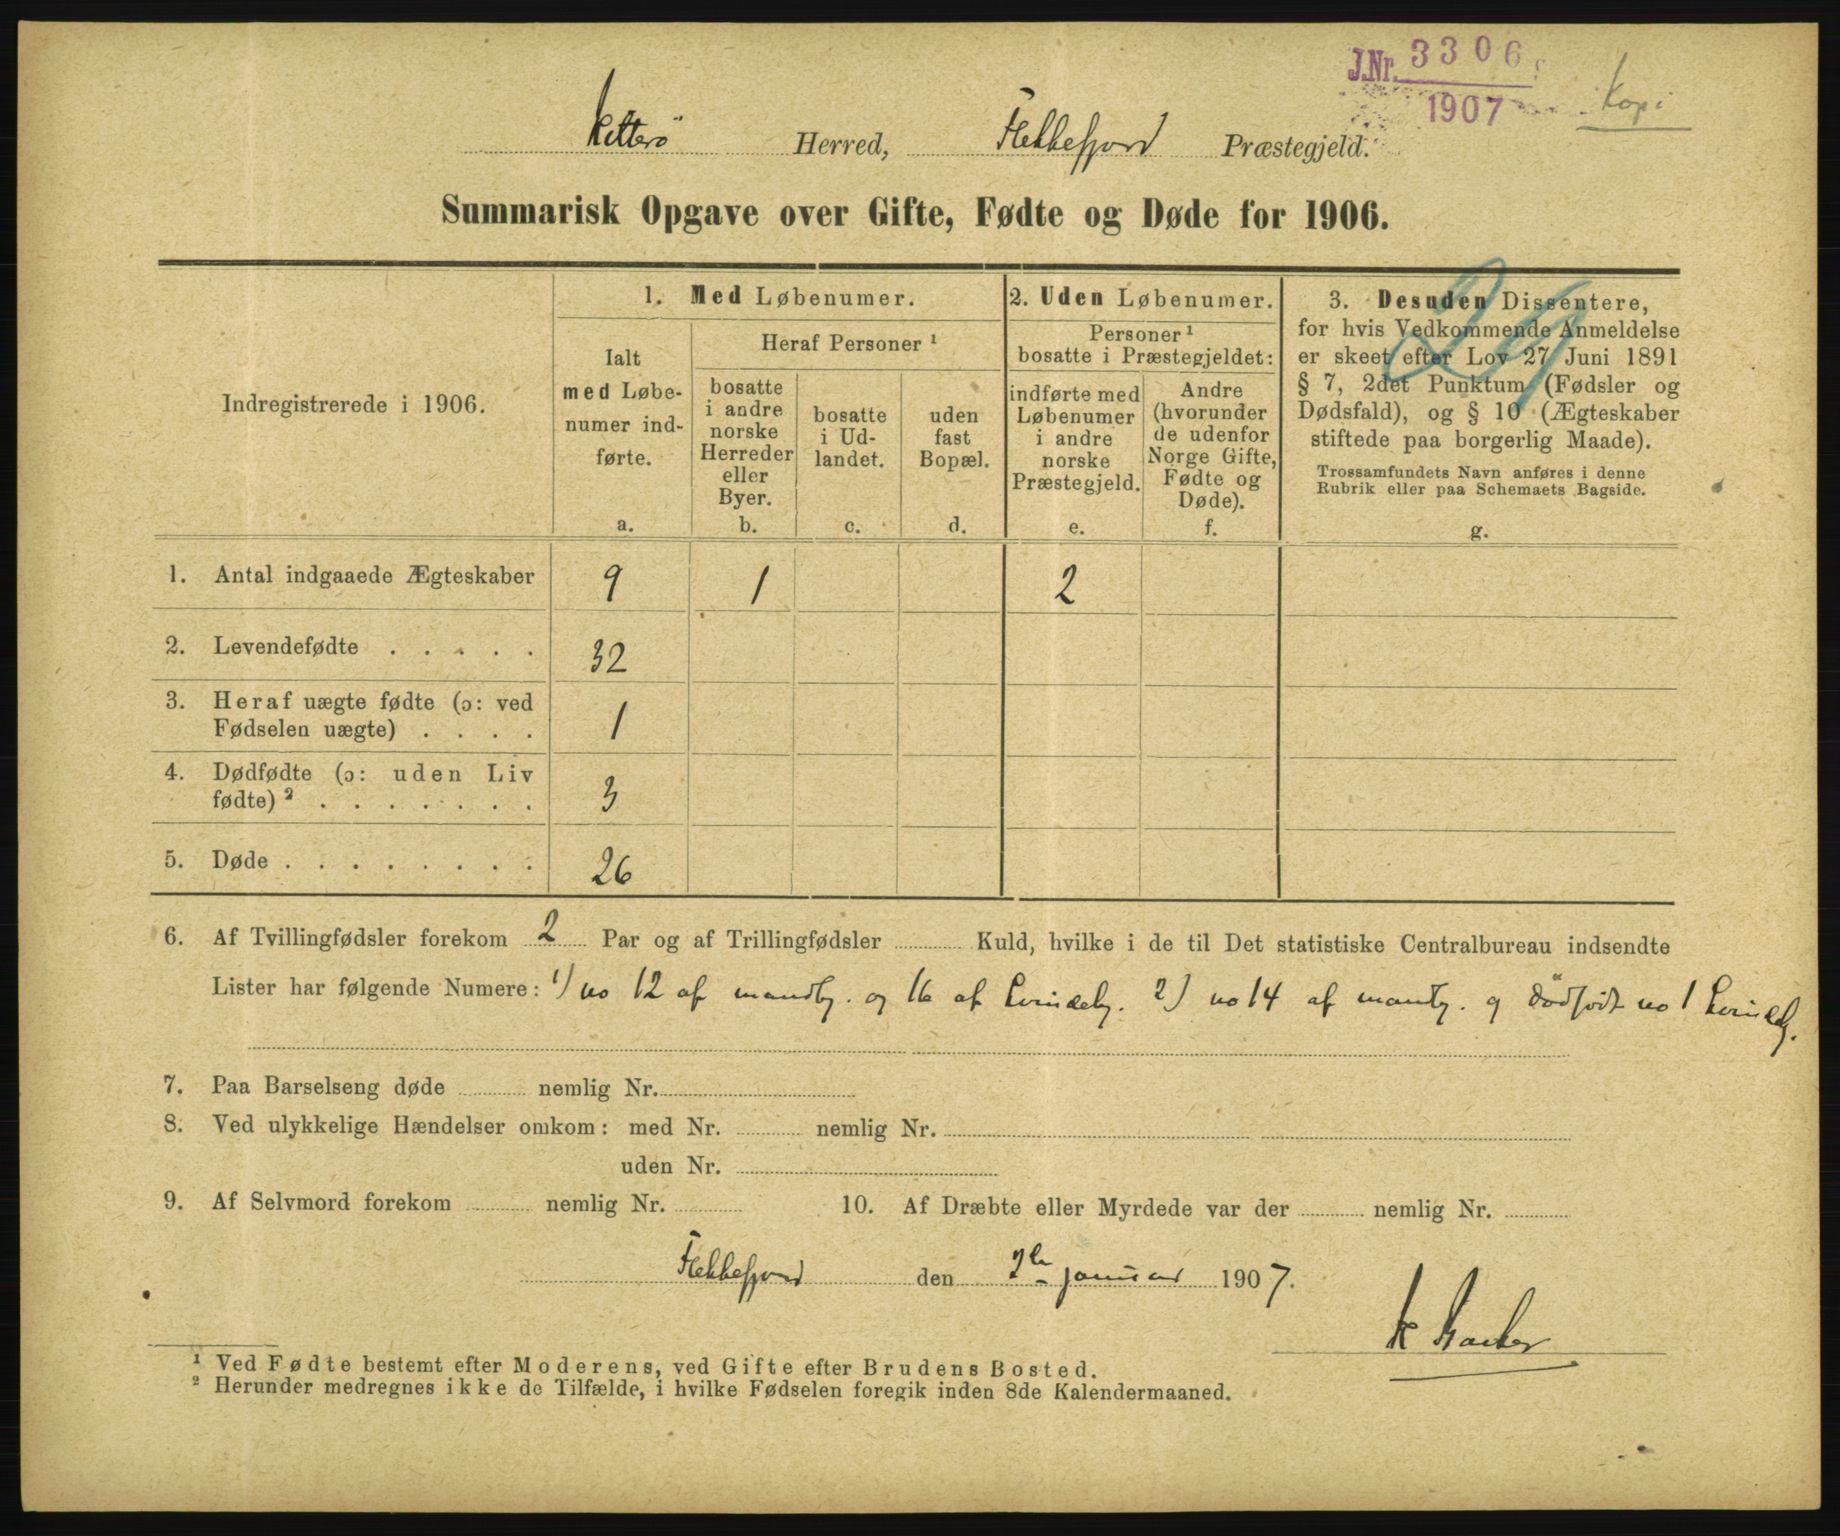 J.Nr. 3306
1907
Kopi
Hitterø Herred, Flekkefjord Præstegjeld.
Summarisk Opgave over Gifte, Fødte og Døde for 1906.
24
Indregistrerede i 1906.
1. Med Løbenumer.
Ialt
med Løbe-
numer ind-
førte.
a.
Heraf Personer ¹
bosatte
i andre
norske
Herreder
eller
Byer.
b.
bosatte
i Ud-
landet.
c.
uden
fast
Bopæl.
d.
2. Uden Løbenumer.
Personer ¹
bosatte i Præstegjeldet:
indførte med
Løbenumer
i andre
norske
Præstegjeld.
e.
Andre
(hvorunder
de udenfor
Norge Gifte,
Fødte og
Døde).
f.
3. Desuden Dissentere,
for hvis Vedkommende Anmeldelse
er skeet efter Lov 27 Juni 1891
§ 7, 2det Punktum (Fødsler og
Dødsfald), og § 10 (Ægteskaber
stiftede paa borgerlig Maade).
Trossamfundets Navn anføres i denne
Rubrik eller paa Schemaets Bagside.
g.
1. Antal indgaaede Ægteskaber 9 1 2
2. Levendefødte . . . . . 32
3. Heraf uægte fødte (ɔ: ved
Fødselen uægte) . . . . 1
4. Dødfødte (ɔ: uden Liv
fødte) ² . . . . . . . 3
5. Døde . . . . . . . . 26
6. Af Tvillingfødsler forekom 2 Par og af Trillingfødsler Kuld, hvilke i de til Det statistiske Centralbureau indsendte
Lister har følgende Numere: 1) no 12 af mandkj. og 16 af kvindekj. 2) no 14 af mandkj. og dødfødt no 1 kvindekj.
7. Paa Barselseng døde nemlig Nr.
8. Ved ulykkelige Hændelser omkom: med Nr. nemlig Nr.
uden Nr.
9. Af Selvmord forekom nemlig Nr. 10. Af Dræbte eller Myrdede var der nemlig Nr.
Flekkefjord den januar 1907.
¹ Ved Fødte bestemt efter Moderens, ved Gifte efter Brudens Bosted.
² Herunder medregnes ikke de Tilfælde, i hvilke Fødselen foregik inden 8de Kalendermaaned.